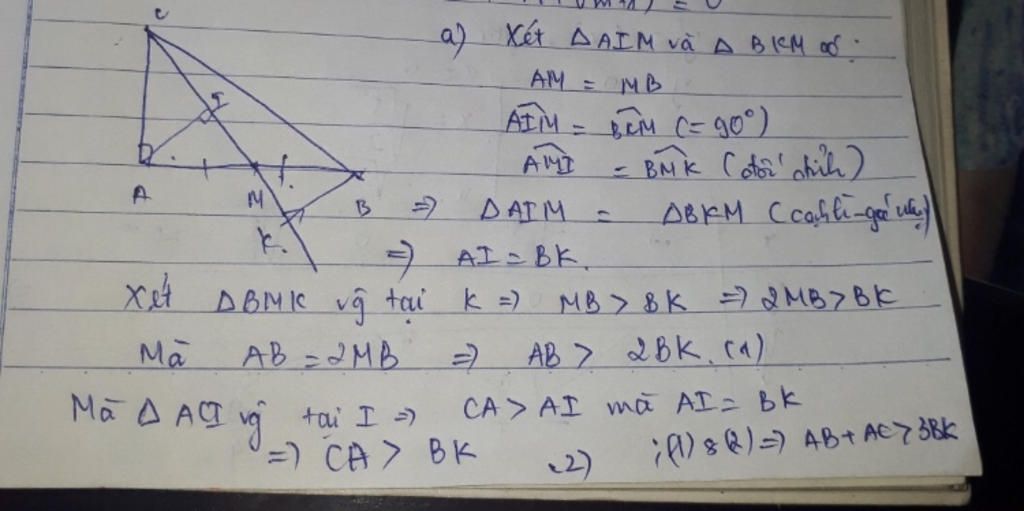 C
I
A
M
B
K
a) Xét ΔAIM và ΔBKM có:
AM = MB
AIM = BKM (= 90°)
AMI = BMK (đối đỉnh)
=> ΔAIM = ΔBKM
=> AI = BK.
Xét ΔBMK vg tại K => MB > BK => 2MB > BK
Mà AB = 2MB => AB > 2BK. (1)
Mà ΔACI vg tại I => CA > AI mà AI = BK
=> CA > BK (2) ; (1) & (2) => AB + AC > 3BK